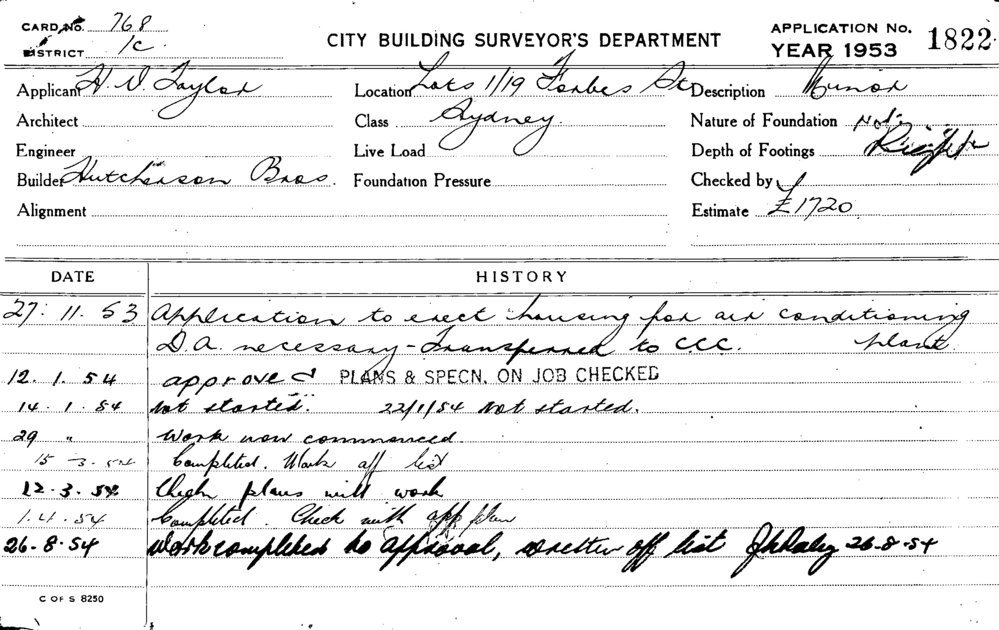 CARD No. 768
DISTRICT 1C
CITY BUILDING SURVEYOR'S DEPARTMENT
APPLICATION No. 1822
YEAR 1953
Applicant H. V. Taylor
Location Lots 1/19 Forbes St
Description Minor
Architect
Class Sydney.
Nature of Foundation
Engineer
Live Load
Depth of Footings
Builder Hutcherson Bros.
Foundation Pressure
Checked by
Alignment
Estimate £1720
DATE HISTORY
27. 11. 53 Application to erect housing for air conditioning
D.A. necessary - Transferred to C.C.C. plant.
12. 1. 54 approved PLANS & SPECN. ON JOB CHECKED
14. 1. 54 Not started. 22/1/54 Not started.
29 " Work now commenced.
15 - 3. 54 Completed. Work off list
12. 3. 54 plans with work
1. 4. 54 Completed. Check with app plan
26. 8. 54 Work completed to approval, written off list 26-8-54
C OF S 8250